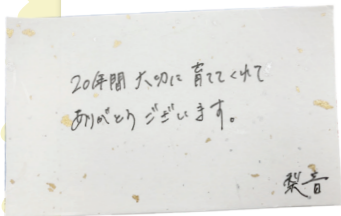 20年間 大切に 育ててくれて
ありがとうございます。
梨音